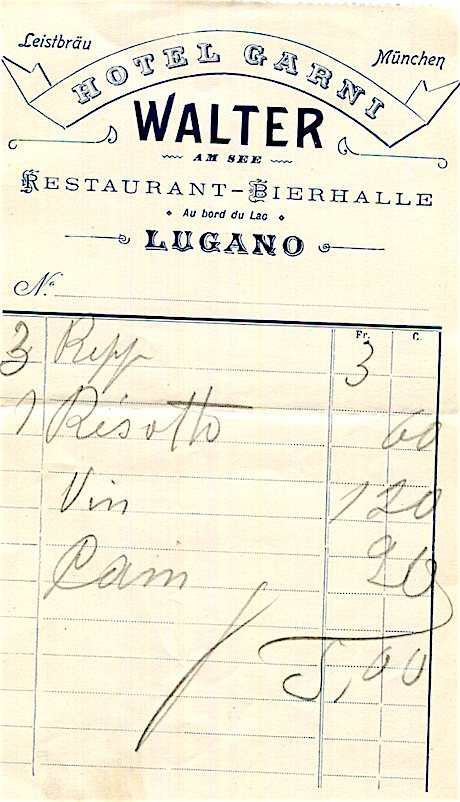 Leistbräu München
HOTEL GARNI
WALTER
AM SEE
RESTAURANT-BIERHALLE
Au bord du Lac
LUGANO
No.
Fr. C.
3 Repp 3
1 Risotto 60
Vin 1 20
Pain 20
5,00